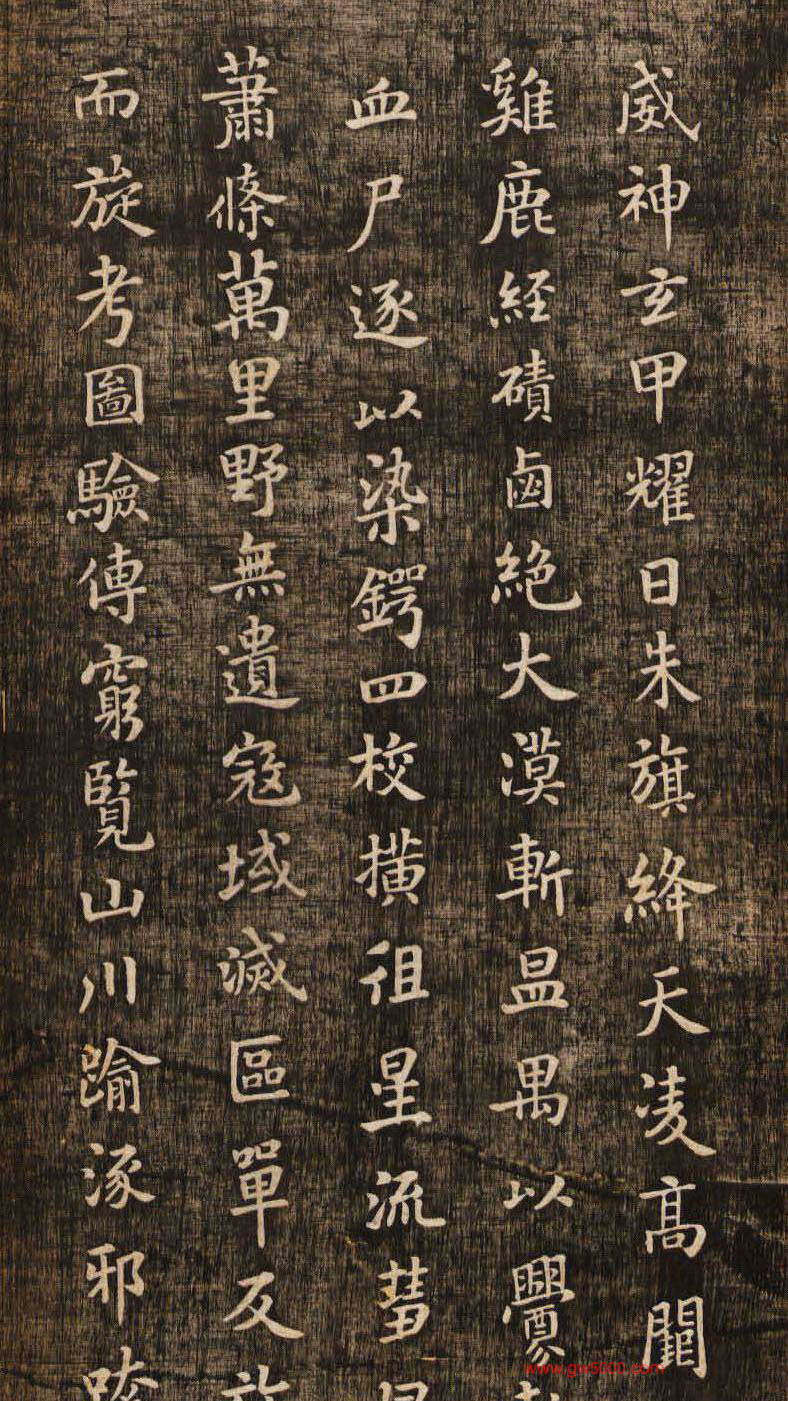 威神玄甲耀日朱旗絳天凌高闕
雞鹿經磧鹵絕大漠斬昷禺以釁
血尸逐以染鍔四校橫徂星流彗
蕭條萬里野無遺寇域滅區單反
而旋考圖驗傳窮覽山川踰涿邪
www.gw5000.com